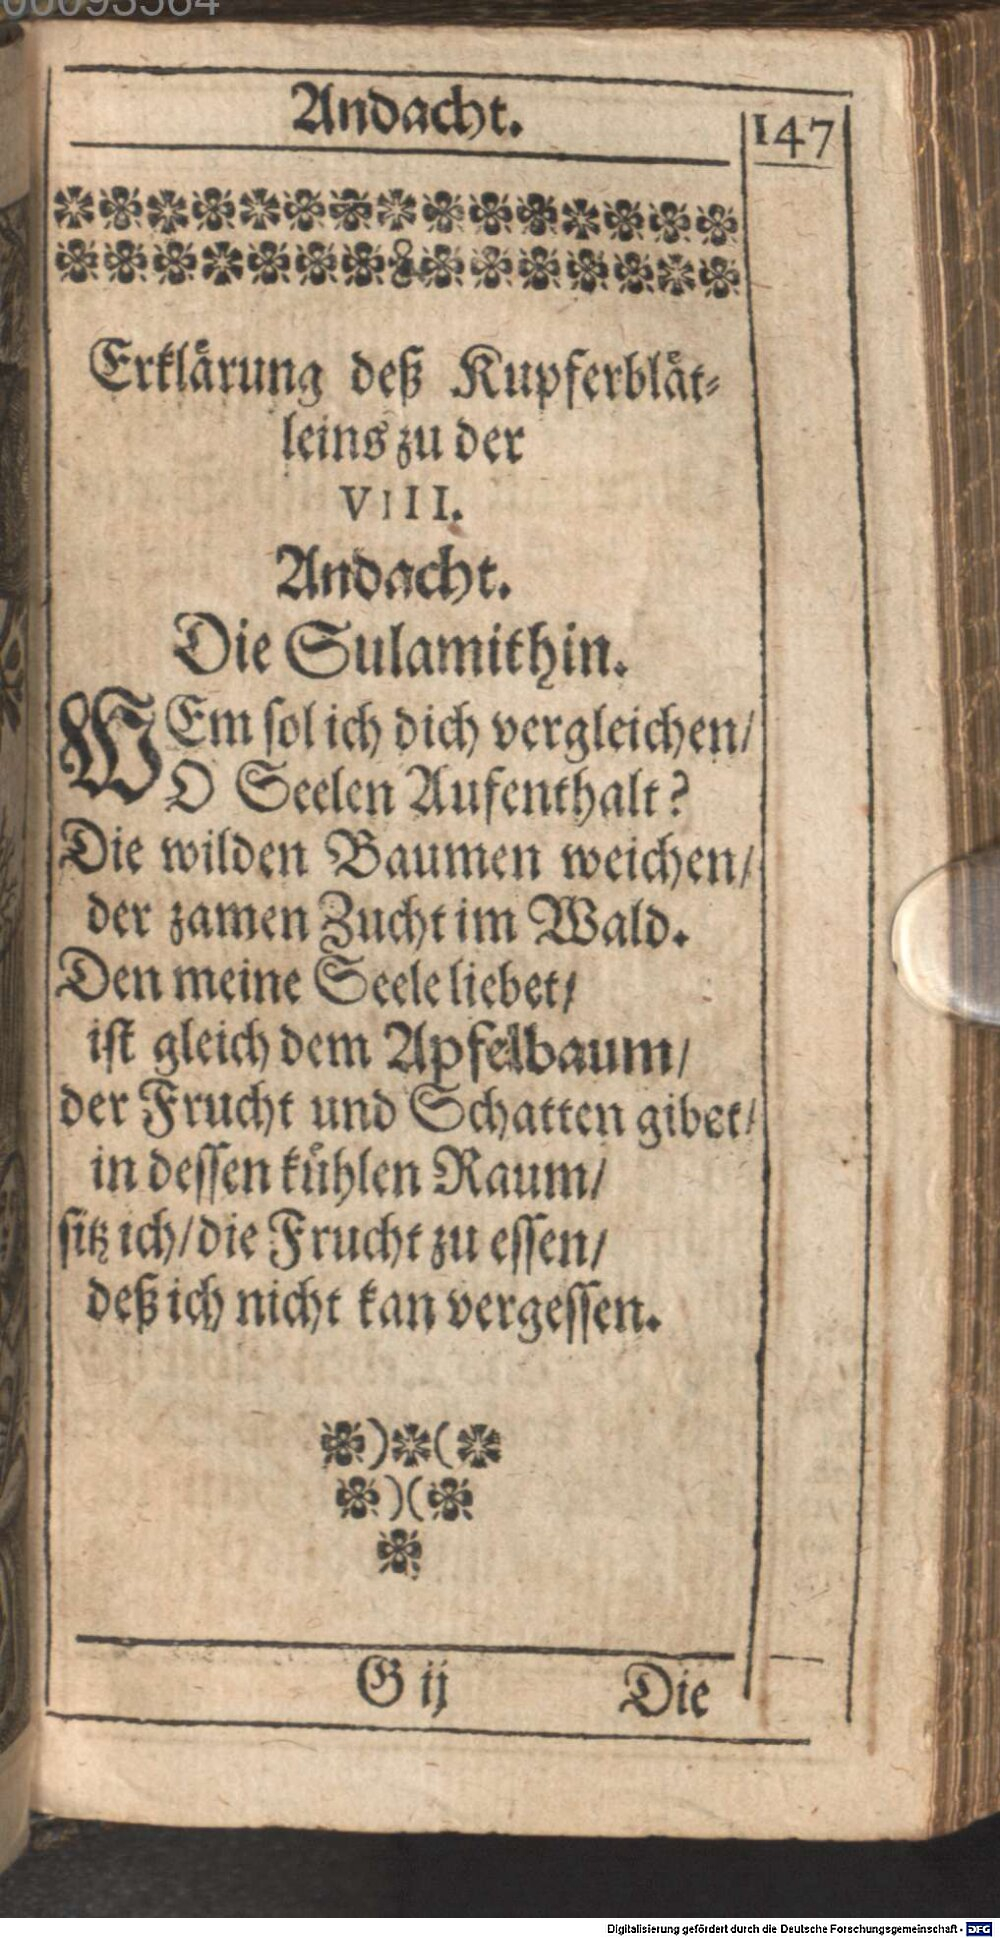 00093564
Andacht.
147
Erklaͤrung deß Kupferblaͤt⸗
leins zu der
VIII.
Andacht.
Die Sulamithin.
WEm ſol ich dich vergleichen/
O Seelen Aufenthalt?
Die wilden Baumen weichen/
der zamen Zucht im Wald.
Den meine Seele liebet/
iſt gleich dem Apfelbaum/
der Frucht und Schatten gibet/
in deſſen kuͤhlen Raum/
ſitz ich/ die Frucht zu eſſen/
deß ich nicht kan vergeſſen.
G ij
Die
Digitalisierung gefördert durch die Deutsche Forschungsgemeinschaft - DFG